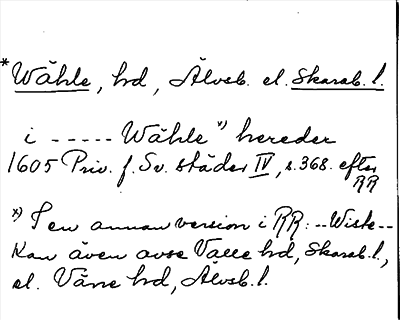 * Wähle, hd, Älvsb. el. Skarab. l.
i ----- Wähle *) hereder
1605 Priv. f. Sv. städer IV, s. 368. efter
RR
*) I en annan version i RR: --Wiste--
Kan även avse Valle hd, Skarab. l.,
el. Väne hd, Älvsb. l.